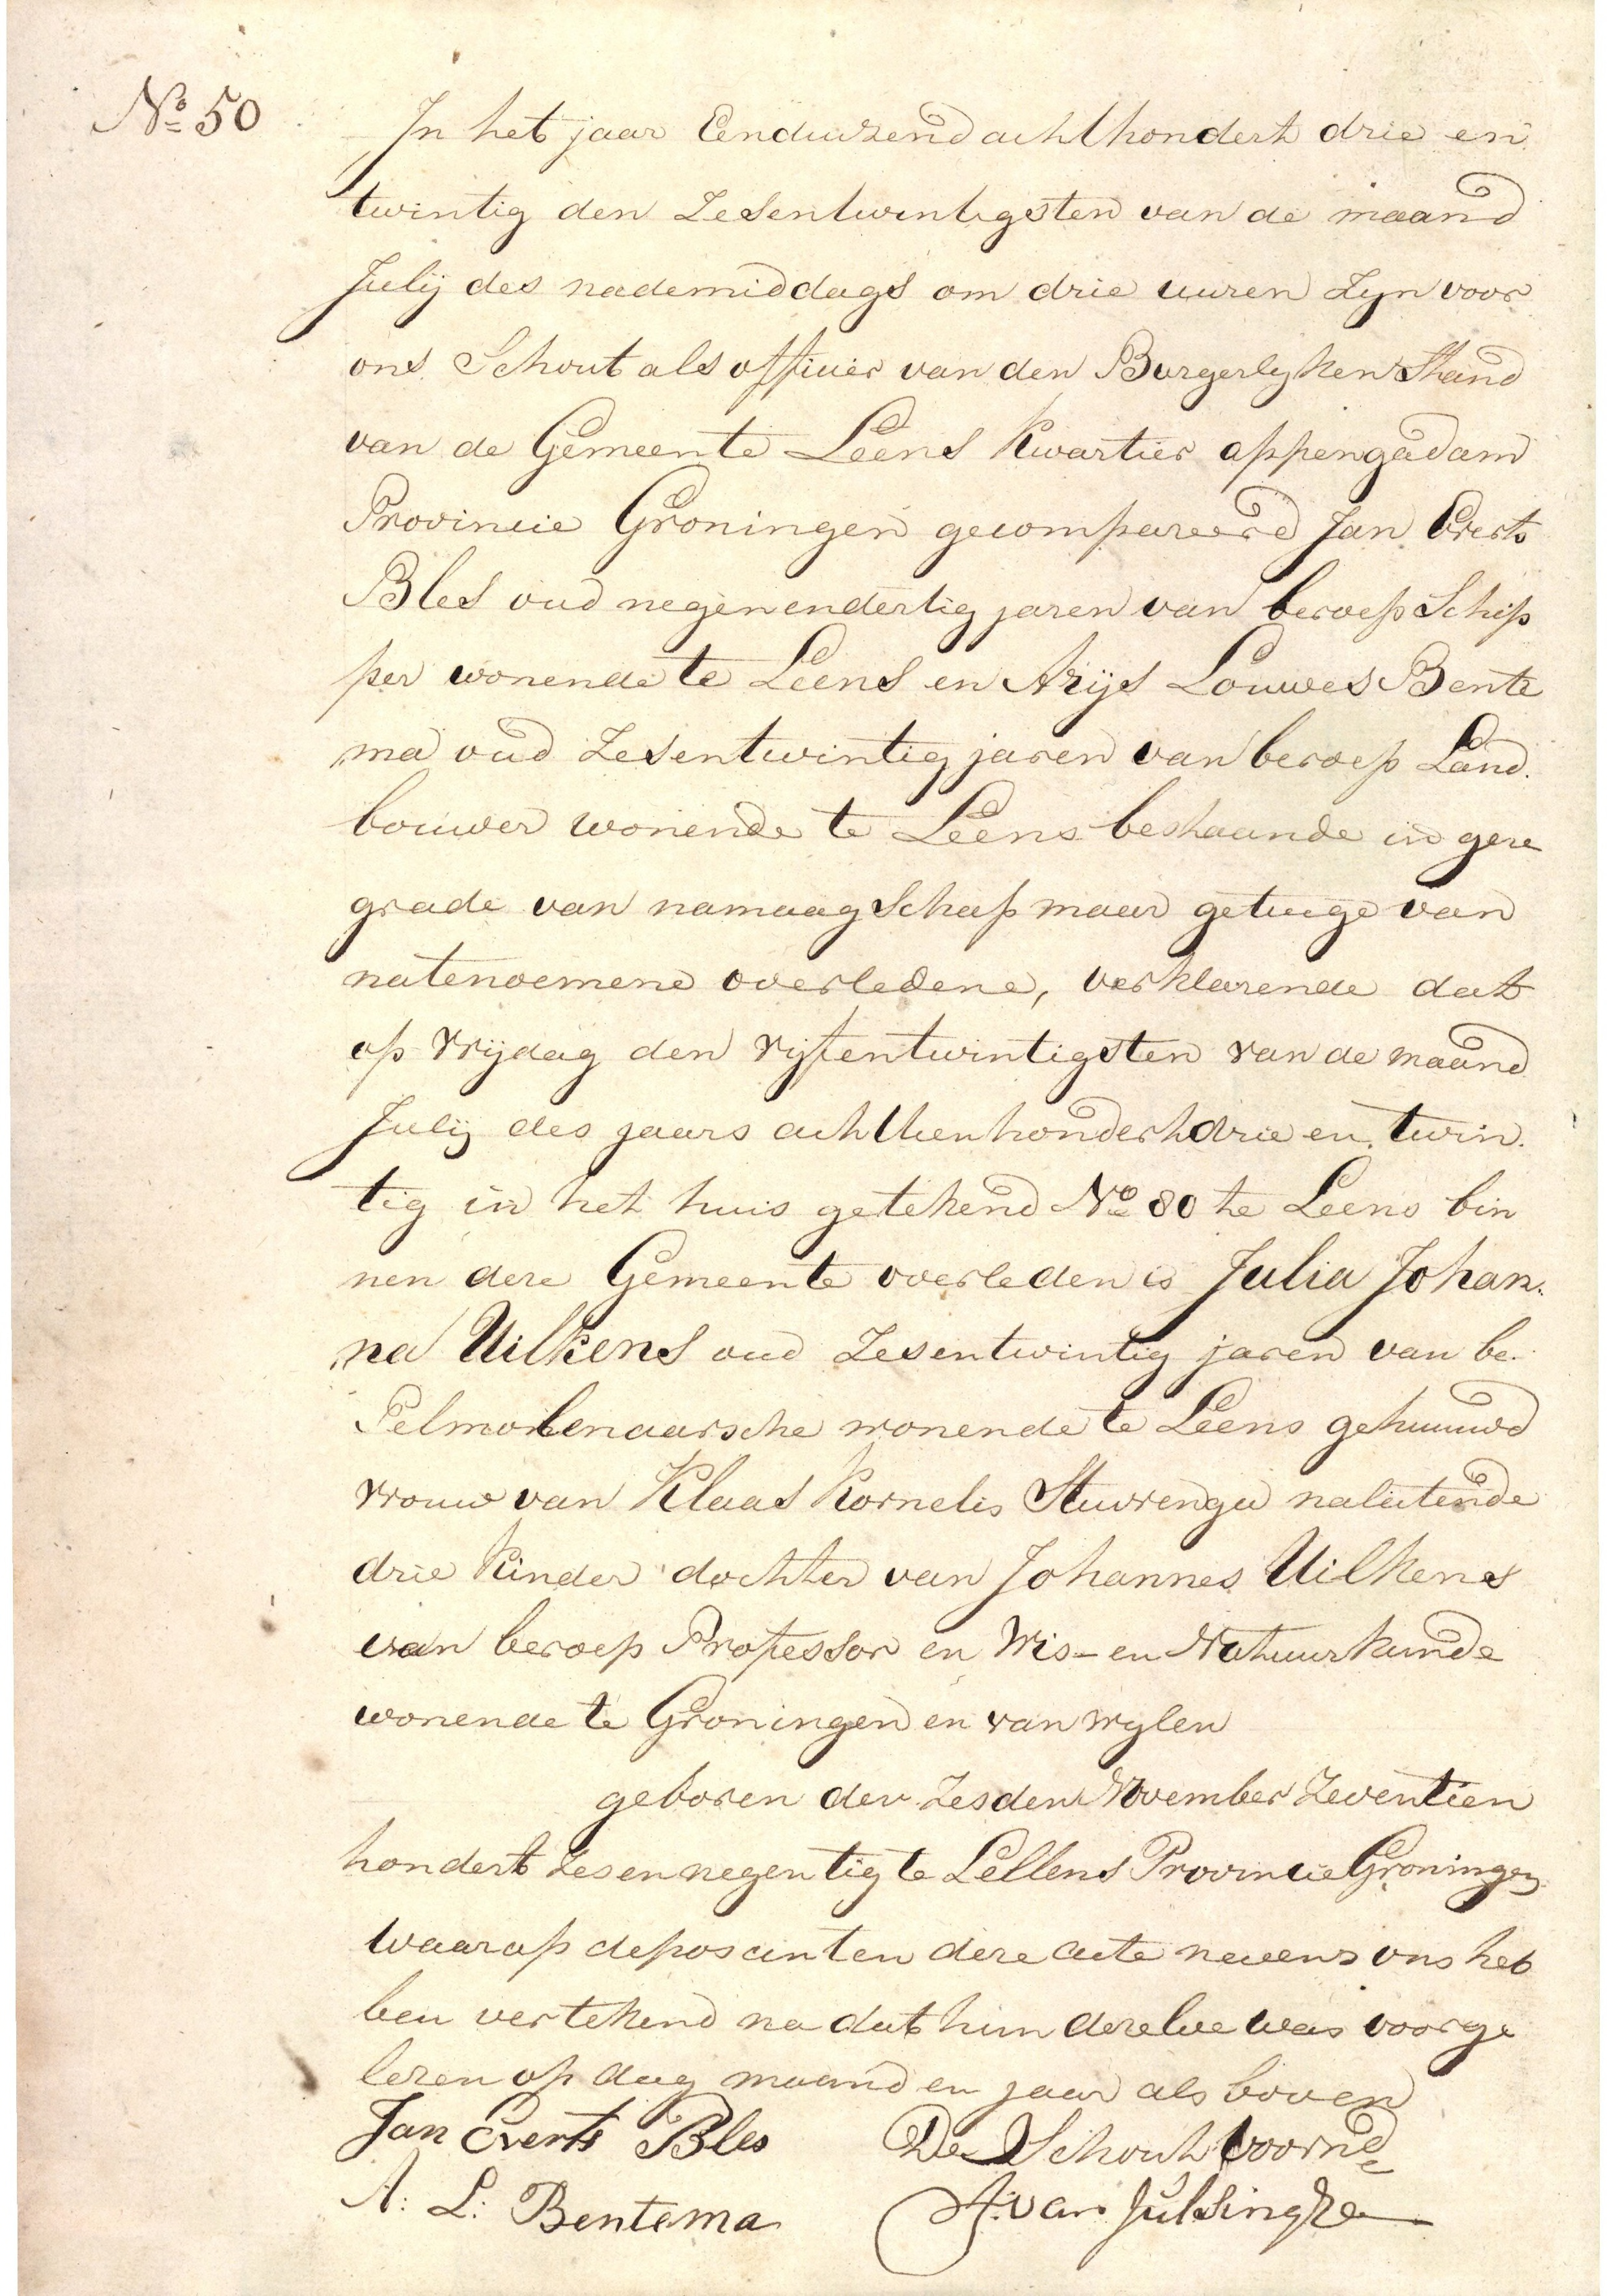 No 50
In het jaar Eenduizend achthondert drie en
twintig den Zesentwintigsten van de maand
Julij des nademiddags om drie uuren Zyn voor
ons Schout als officier van den Burgerlyken Stand
van de Gemeente Leens Kwartier appengadam
Provincie Groningen gecompareerd Jan Everts
Bles oud negenendertig jaren van beroep Schip
per wonende te Leens en Arijs Louwes Bente
ma oud Zesentwintig jaren van beroep Land.
bouwer wonende te Leens bestaande in gene
grade van namaagschap maar getuige van
natenoemene overledene, verklarende dat
op Vrijdag den vijfentwintigsten van de maand
Julij des jaars achttienhondert drie en twin.
tig in het huis getekend No 80 te Leens bin
nen deze Gemeente overleden is Julia Johan.
na Uilkens oud Zesentwintig jaren van be.
Pelmolenaarsche wonende te Leens gehuuwd
vrouw van Klaas Kornelis Stuvrenga nalatende
drie kinder dochter van Johannes Uilkens
van beroep Professor en Wis- en Natuurkunde
wonende te Groningen en van wylen
geboren den Zesden November Zeventien
hondert Zesennegentig te Lellens Provincie Groningen
waarop deposanten deze acte nevens ons heb
ben vertekend na dat hun dezelve was voorge
lezen op dag maand en jaar als boven
Jan Everts Bles De Schout voornd
A: L: Bentema A. van Julsingha